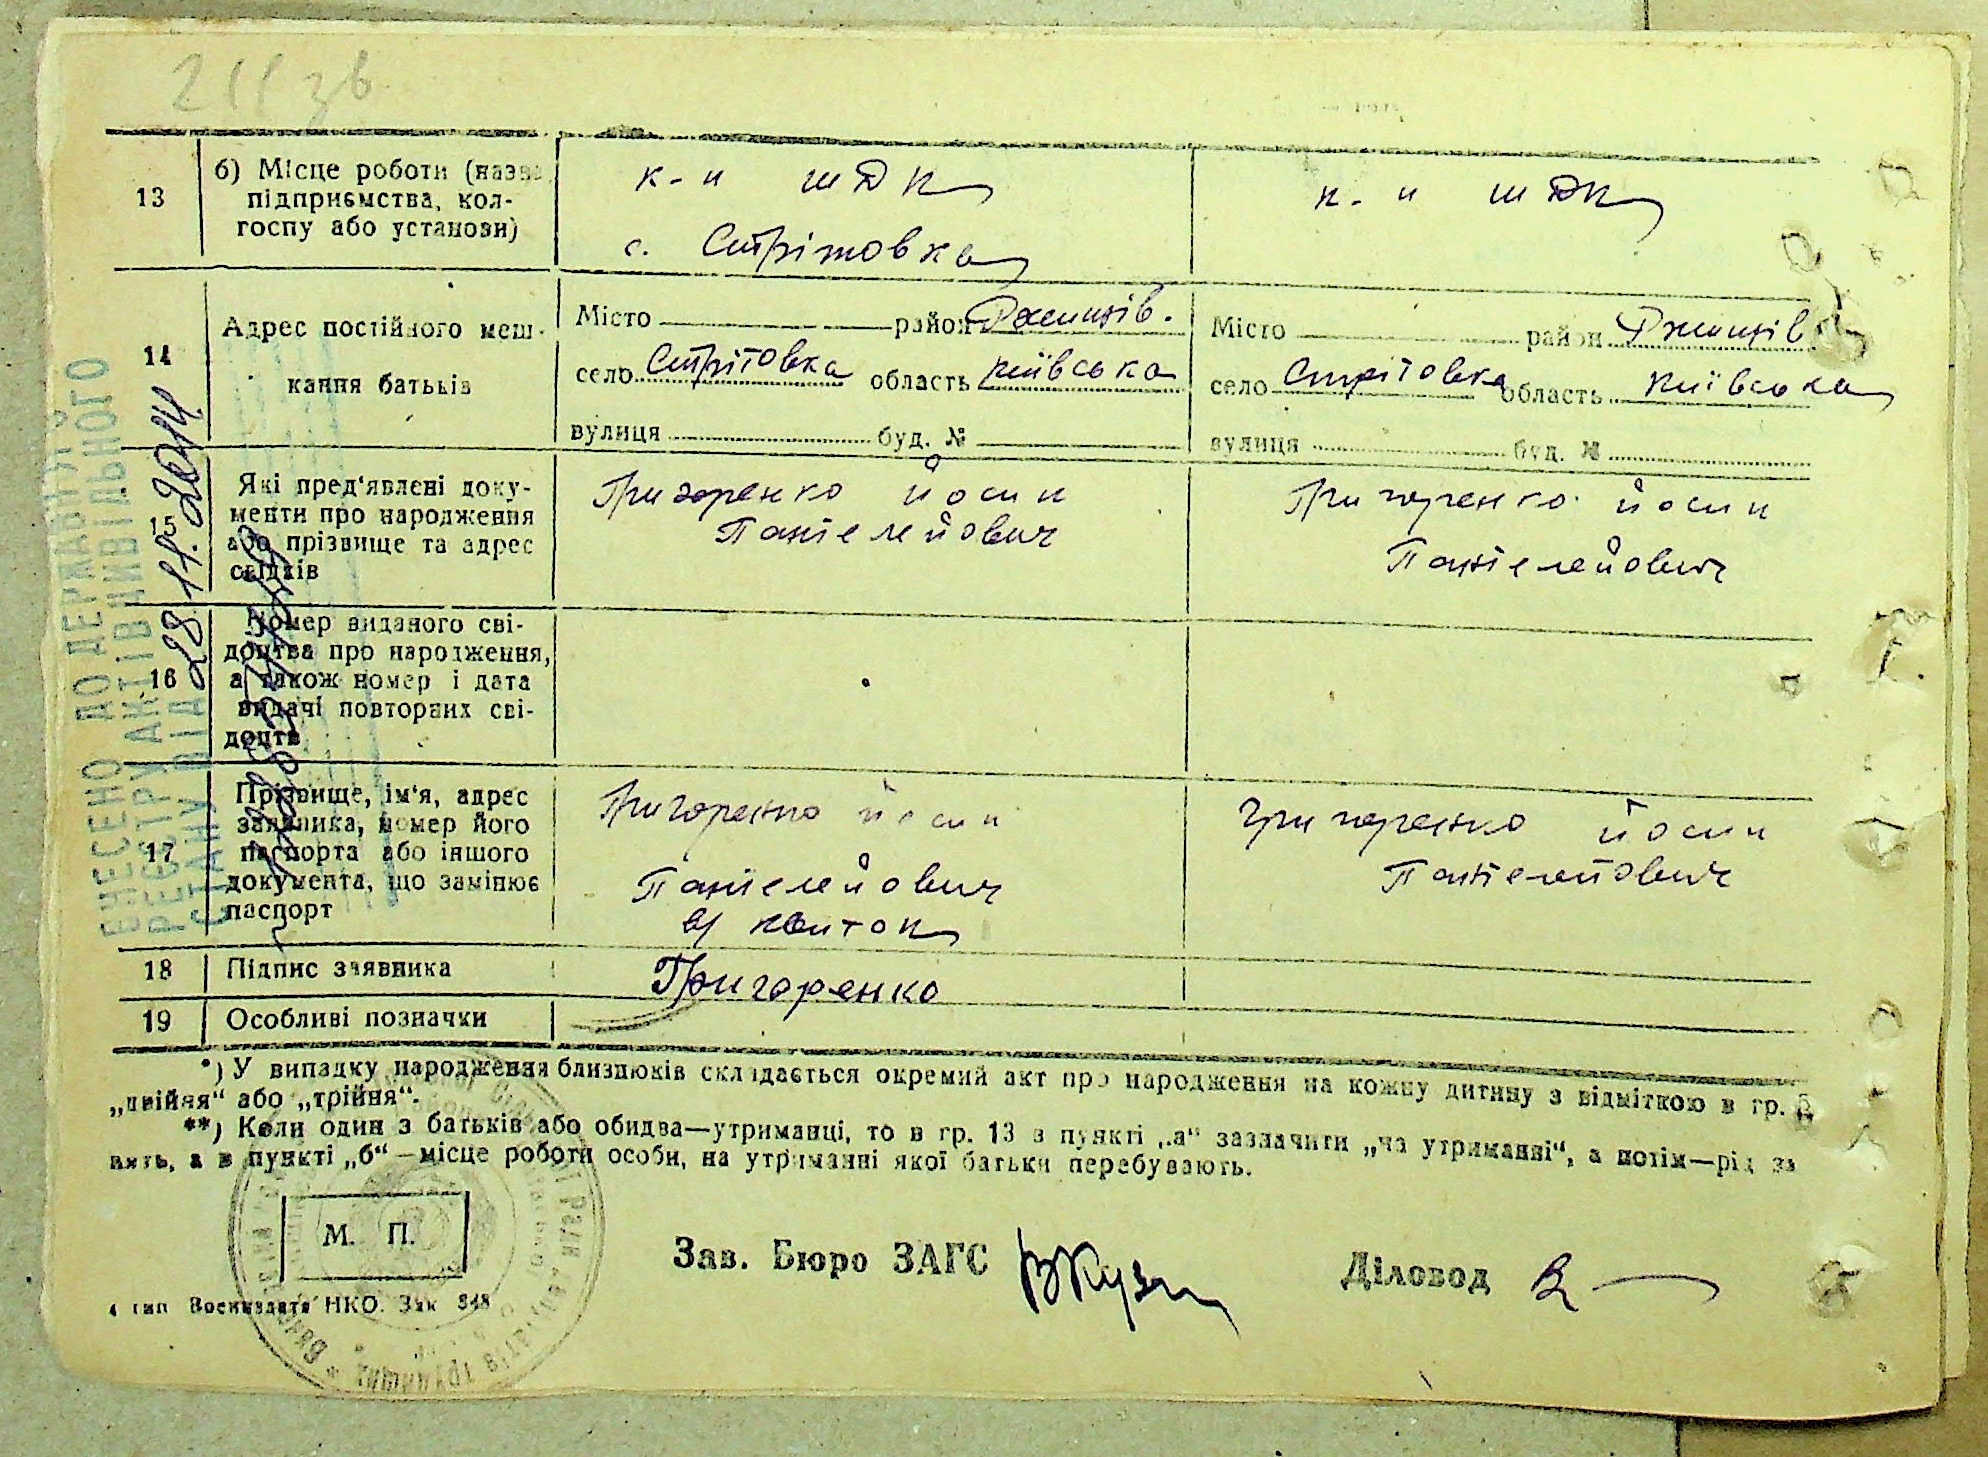 211 зв
13
б) Місце роботи (назва
підприємства, кол-
госпу або установи)
к-п шДК
с. Стрітовка
к-п шДК
14
Адрес постійного меш-
кання батьків
Місто район Ржищів.
село Стрітовка область Київська
вулиця буд. №
Місто район Ржищів
село Стрітовка область Київська
вулиця буд. №
15
Які пред'явлені доку-
менти про народження
або прізвище та адрес
свідків
Григоренко Йосип
Пантелейович
Григоренко Йосип
Пантелейович
16
Номер виданого сві-
доцтва про народження,
а також номер і дата
видачі повторних сві-
доцтв
17
Прізвище, ім'я, адрес
заявника, номер його
паспорта або іншого
документа, що замінює
паспорт
Григоренко Йосип
Пантелейович
Григоренко Йосип
Пантелейович
18
Підпис заявника
Григоренко
19
Особливі позначки
*) У випадку народження близнюків складається окремий акт про народження на кожну дитину з відміткою в гр. 5
„двійня“ або „трійня“.
**) Коли один з батьків або обидва—утриманці, то в гр. 13 в пункті „а“ зазначити „на утриманні“, а потім—рід за
нять, а в пункті „б“—місце роботи особи, на утриманні якої батьки перебувають.
М. П.
Зав. Бюро ЗАГС
Діловод
4 тип Воениздата НКО. Зак 848
ВНЕСЕНО ДО ДЕРЖАВНОГО
РЕЄСТРУ АКТІВ ЦИВІЛЬНОГО
СТАНУ ВІД 28.11.2014